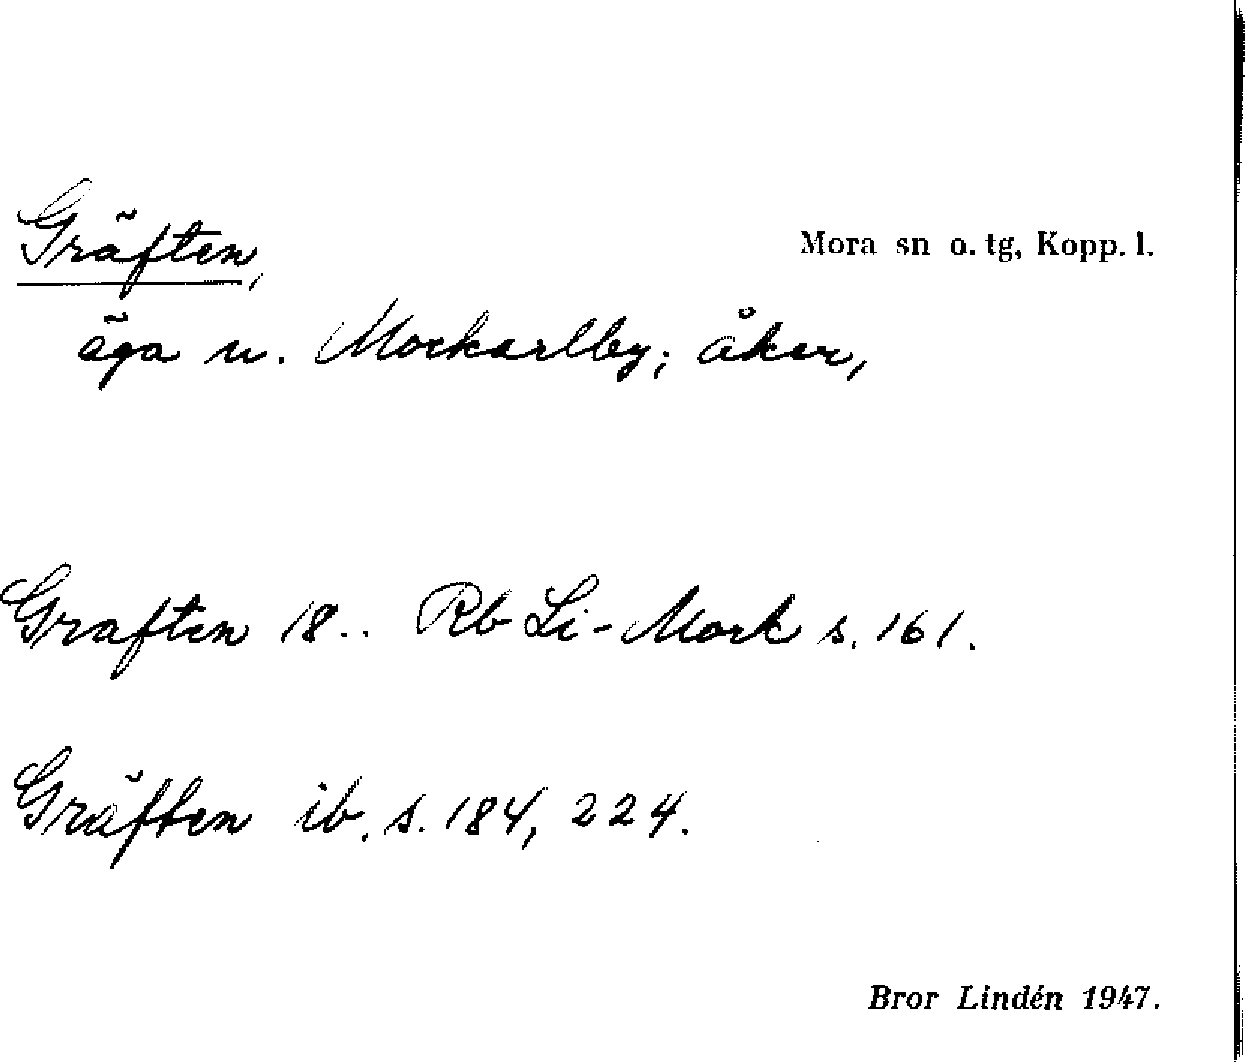 Gräften,
Mora sn o. tg, Kopp. l.
äga u. Mockarlby; åker,
Graften 18.. Rb Li-Mork s. 161.
Gräften ib. s. 184, 224.
Bror Lindén 1947.